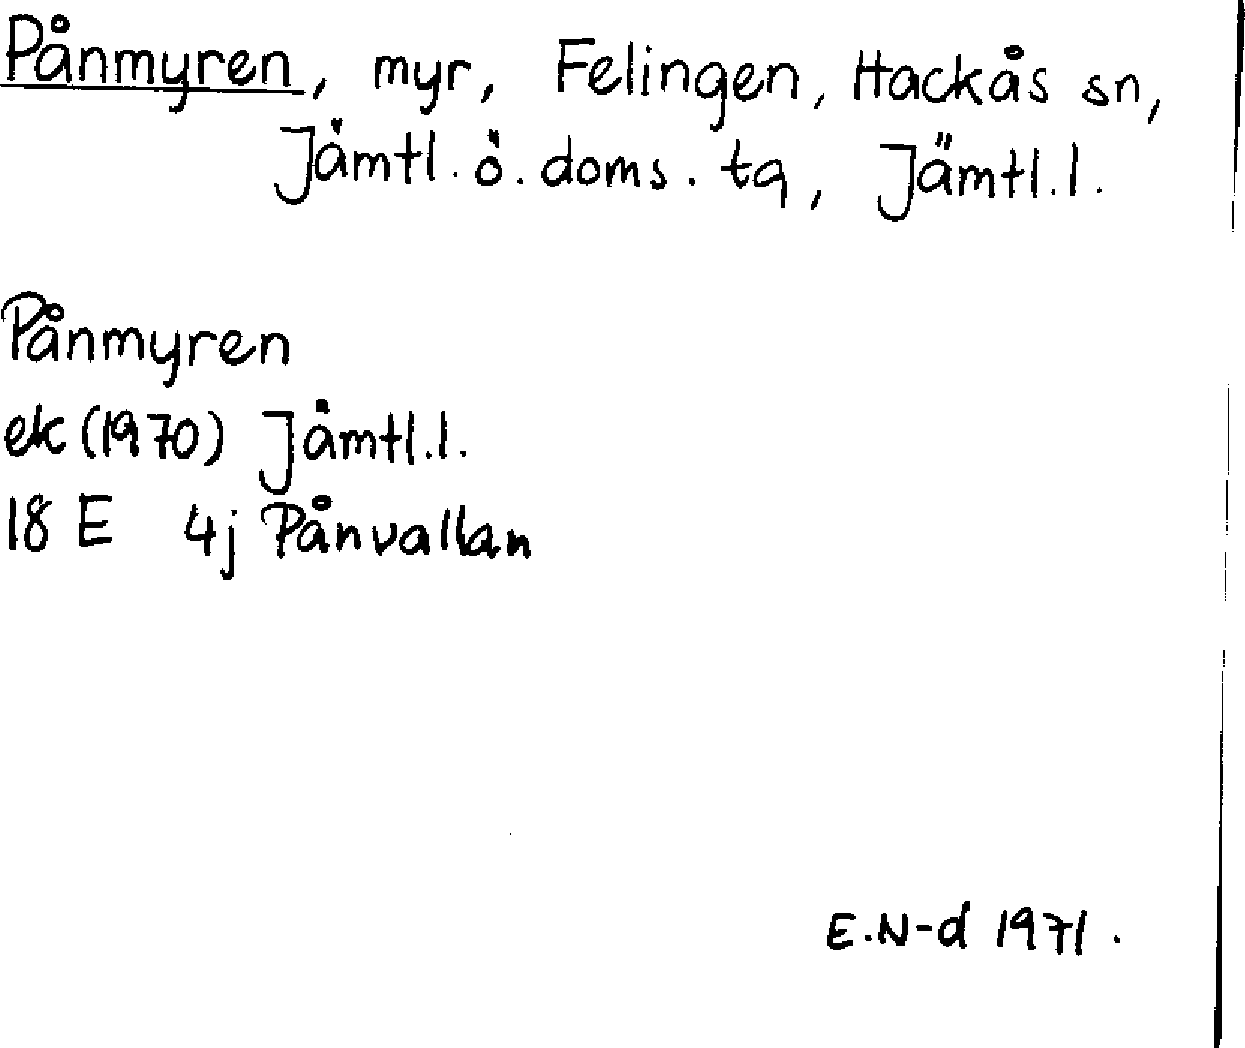 Pånmyren, myr, Felingen, Hackås sn,
Jämtl. ö. doms. tg, Jämtl.l.
Pånmyren
ek (1970) Jämtl.l.
18 E 4j Pånvallan
E.N-d 1971.